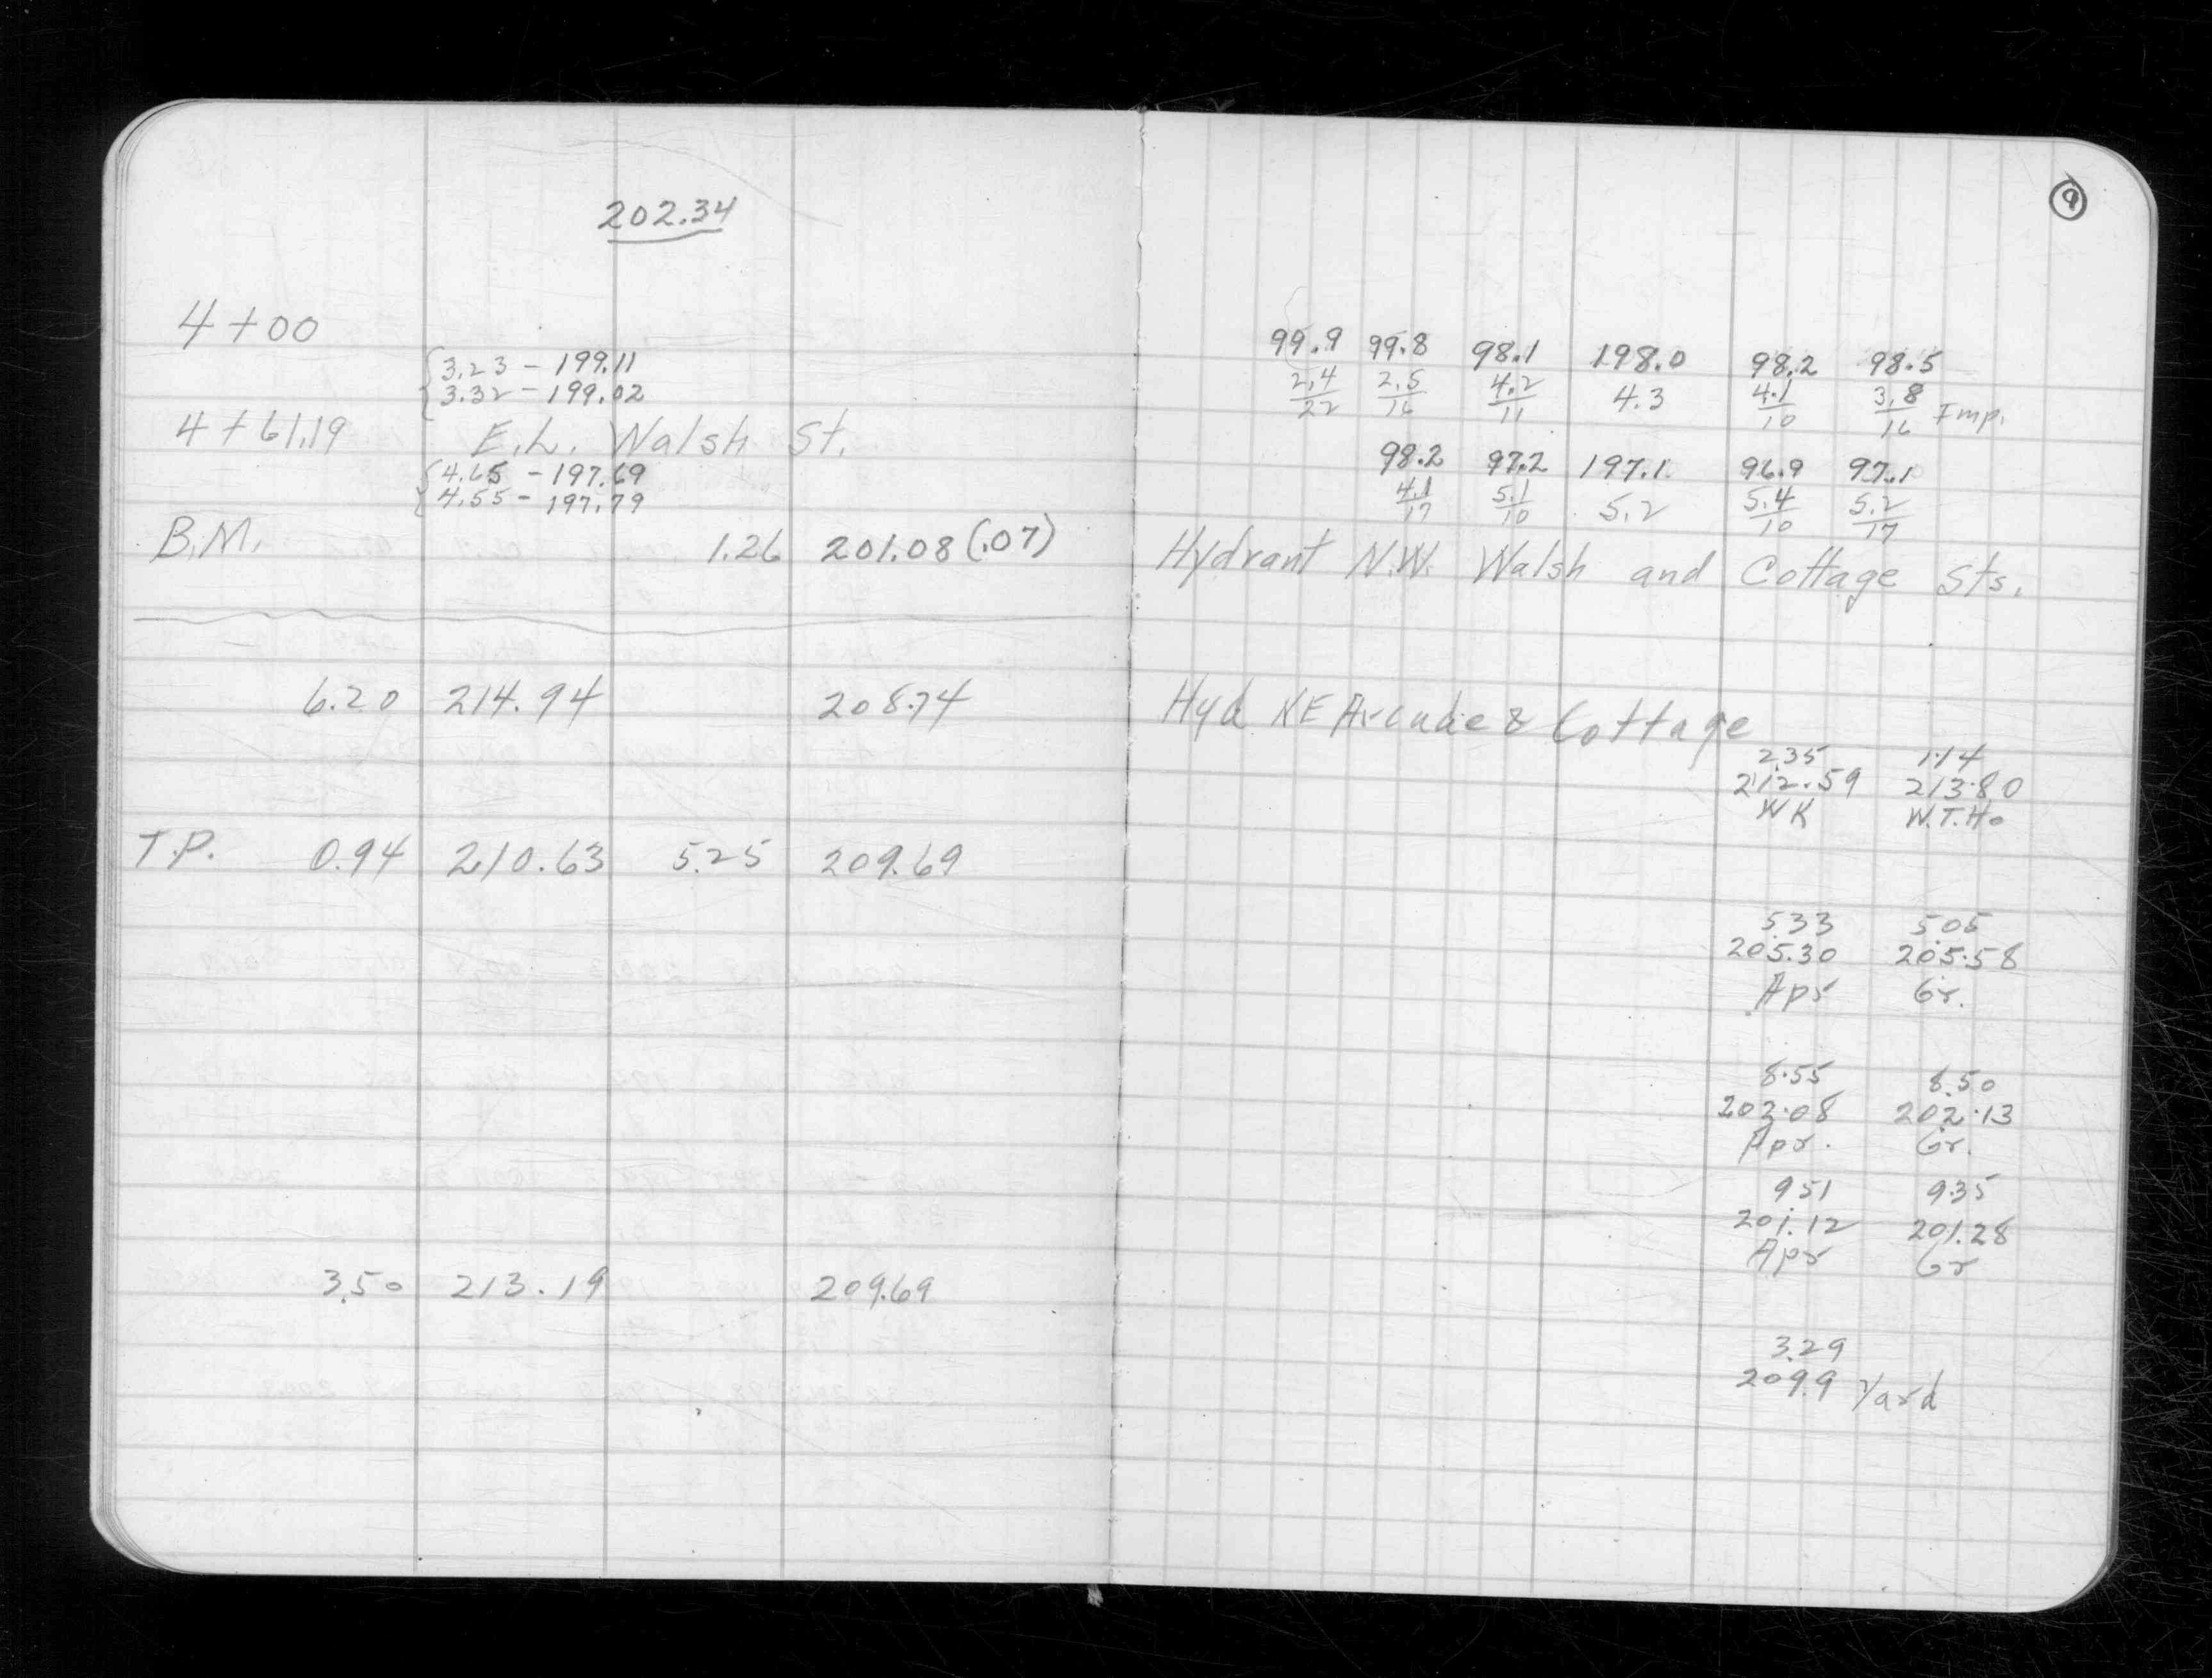 202.34
4+00
3.23 - 199.11
3.32 - 199.02
4+61.19 E.L. Walsh St.
4.65 - 197.69
4.55 - 197.79
B.M. 1.26 201.08 (.07)
6.20 214.94 208.74
T.P. 0.94 210.63 5.25 209.69
3.50 213.19 209.69
9
99.9 99.8 98.1 198.0 98.2 98.5
2.4 2.5 4.2 4.3 4.1 3.8
22 16 11 10 16 Imp.
98.2 97.2 197.1 96.9 97.1
4.1 5.1 5.2 5.4 5.2
17 10 10 17
Hydrant N.W. Walsh and Cottage Sts.
Hyd NE Arcade & Cottage
2.35 1.14
212.59 213.80
WK W.T.Ho
5.33 5.05
205.30 205.58
Apr Gr.
8.55 8.50
202.08 202.13
Apr. Gr.
9.51 9.35
201.12 201.28
Apr Gr
3.29
209.9 Yard